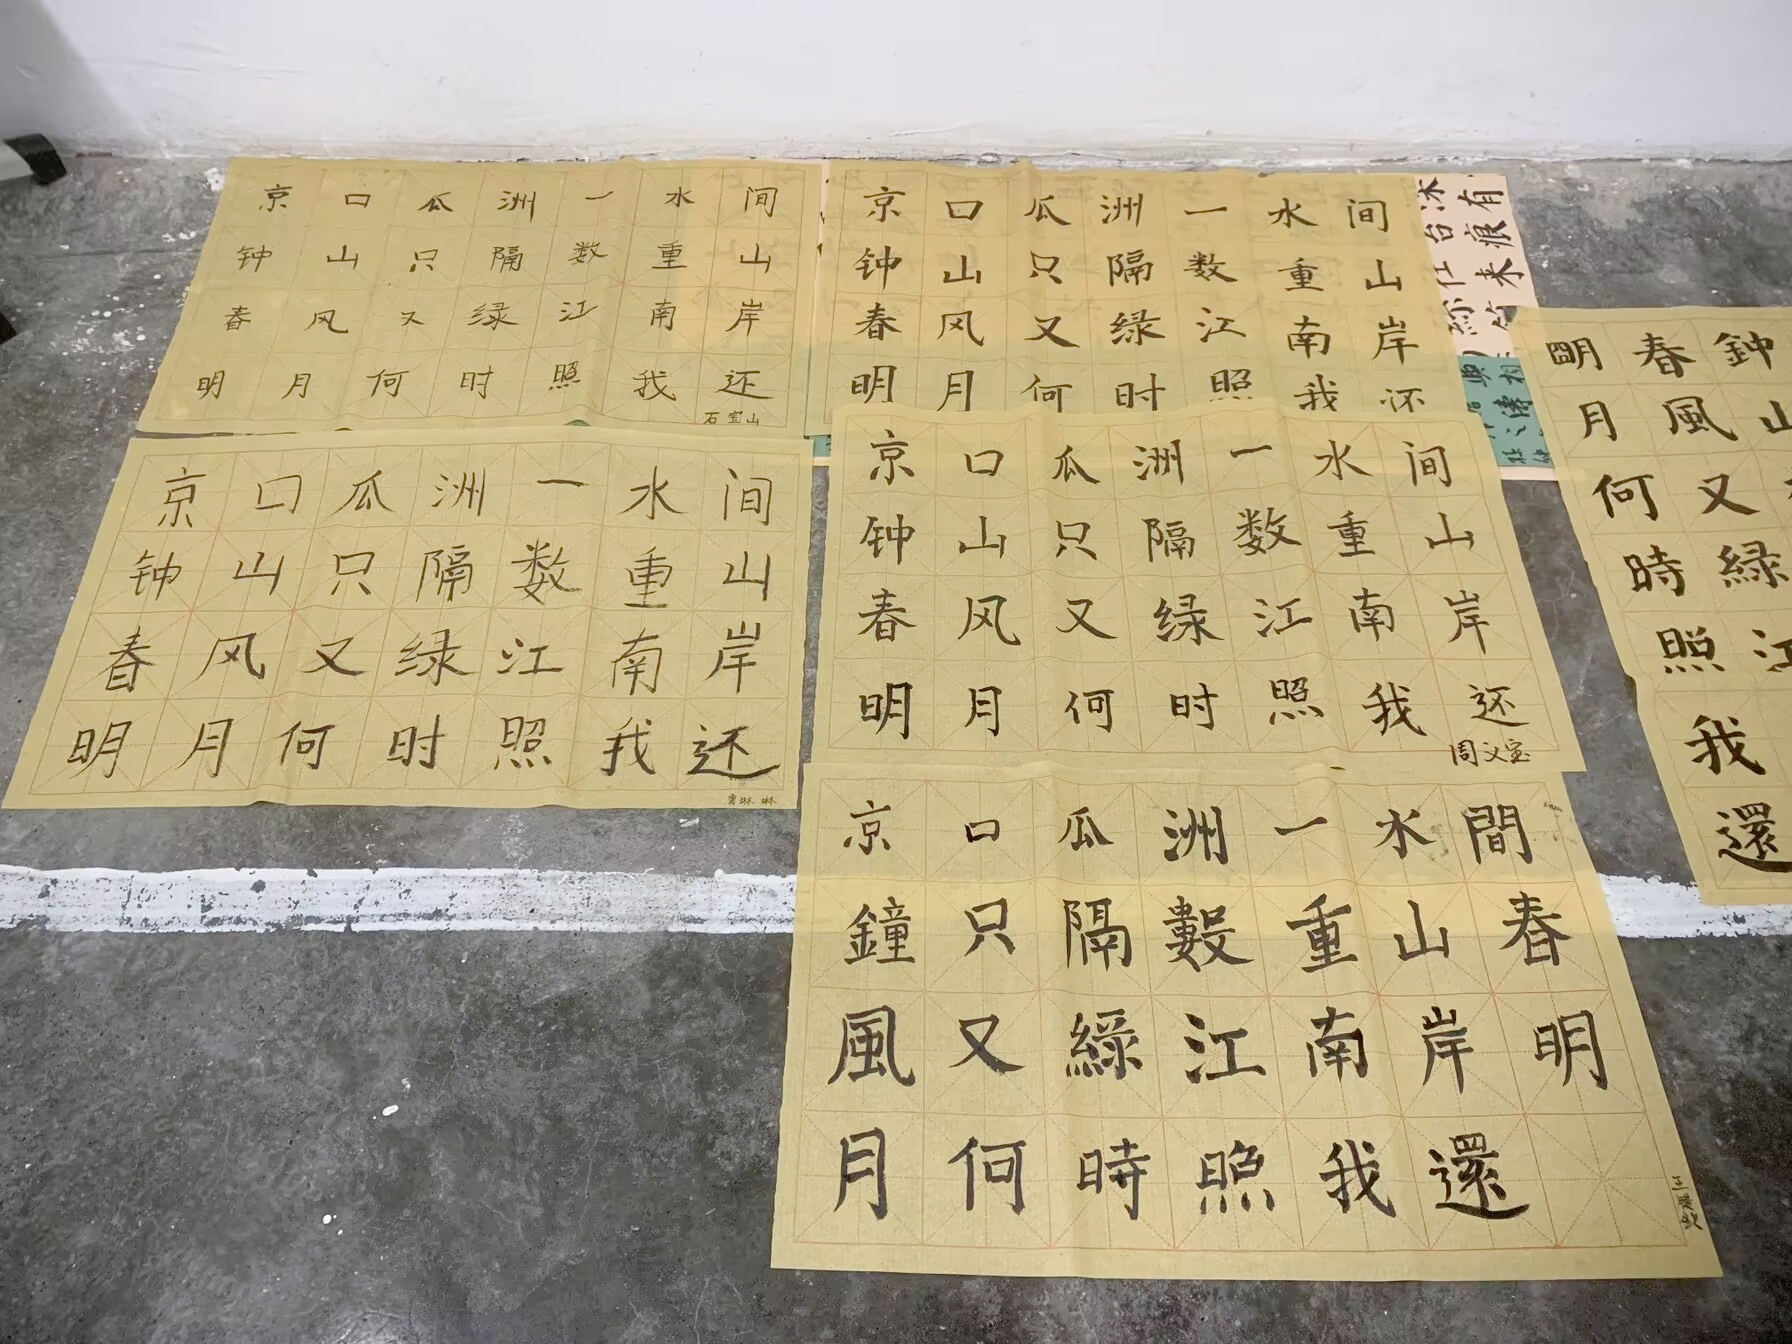 京口瓜洲一水间
钟山只隔数重山
春风又绿江南岸
明月何时照我还
石宝山
京口瓜洲一水间
钟山只隔数重山
春风又绿江南岸
明月何时照我还
有痕来
沐台仕
京口瓜洲一水间
钟山只隔数重山
春风又绿江南岸
明月何时照我还
琳琳
京口瓜洲一水间
钟山只隔数重山
春风又绿江南岸
明月何时照我还
周义宝
京口瓜洲一水間
鐘只隔數重山春
風又綠江南岸明
月何時照我還
王
鈡山
春風又綠江
明月何時照我還